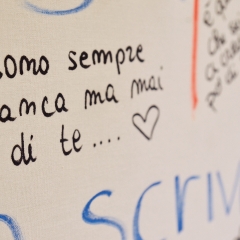 como sempre
anca ma mai
di te.... ♡
SCRIV